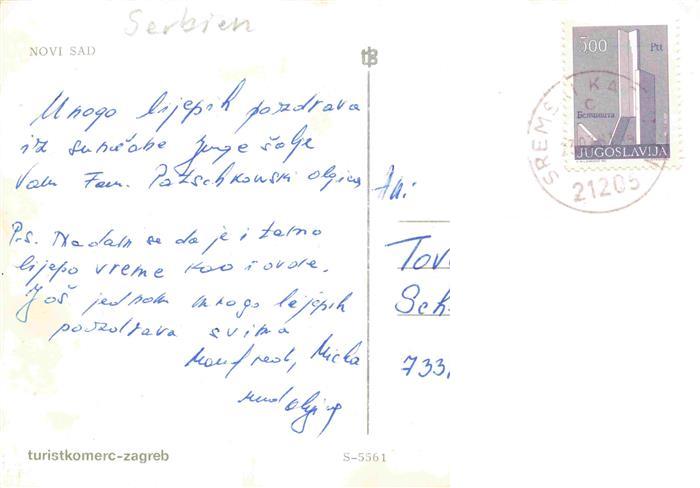 Serbien
NOVI SAD
Mnogo lijepih pozdrava
iz sunčane Juge šalje
Vam Fam. Patschkowski
P.s. Nadam se da je i tamo
lijepo vreme kao i ovde.
Još jednom mnogo lijepih
pozdrava svima
Manfred, Micha
und
turistkomerc-zagreb
S-5561
An:
Tov
Sch
733
500 Ptt
JUGOSLAVIJA
SREMSKI KA
21205